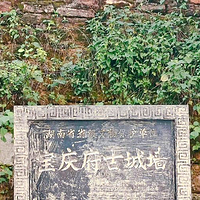 湖南省省级文物保护单位
宝庆府古城墙